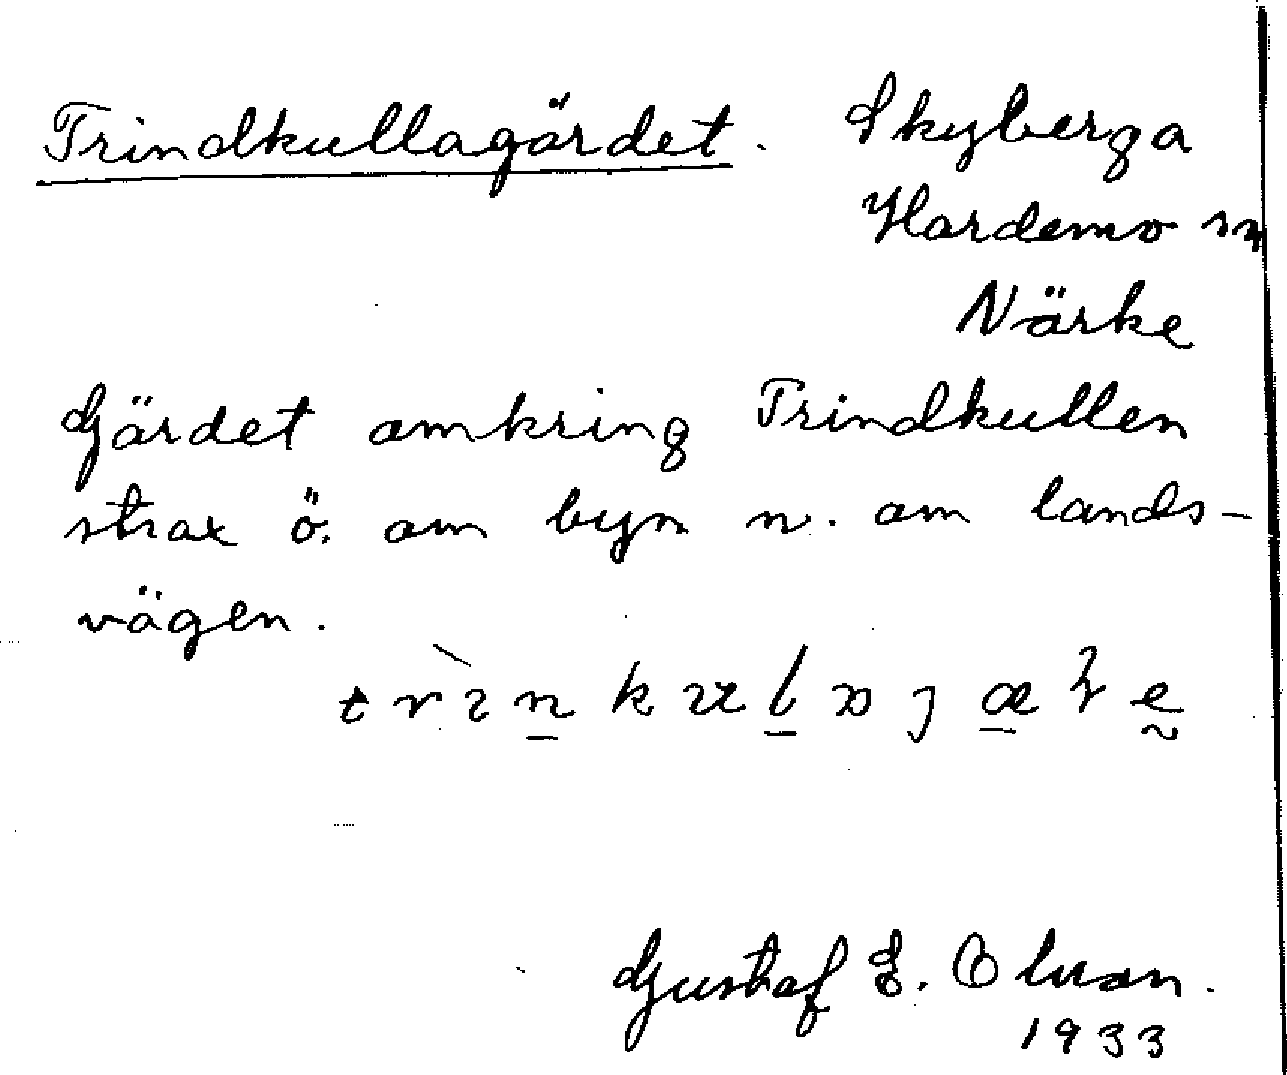 Trindkullagärdet. Skyberga
Hardemo sn
Närke
Gärdet omkring Trindkullen
strax ö. om byn n. om lands-
vägen.
Gustaf E.
1933